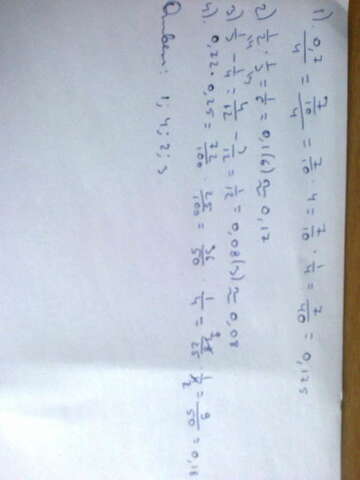 1). 0,7/4 = 7/10/4 = 7/10 · 4 = 7/10 · 1/4 = 7/40 = 0,125
2) 1/2 · 1/3 = 1/6 = 0,1(6) ≈ 0,17
3) 1/3 - 1/4 = 4/12 - 3/12 = 1/12 = 0,08(3) ≈ 0,08
4). 0,72 · 0,25 = 72/100 · 25/100 = 36/50 · 1/4 = 18/25 · 1/4 = 9/50 = 0,18
Ответ: 1; 4; 2; 3